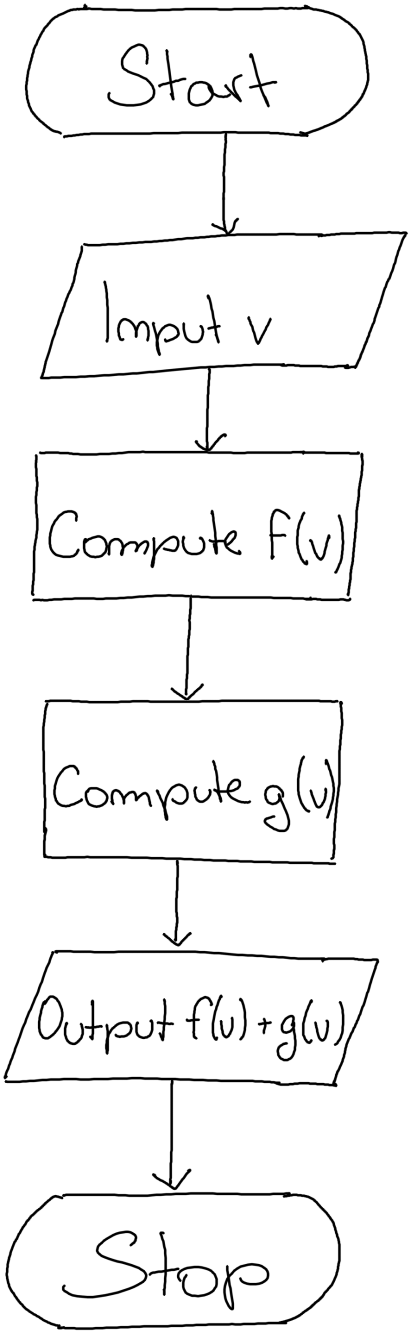 Start
Imput v
Compute f(v)
Compute g(v)
Output f(v) + g(v)
Stop